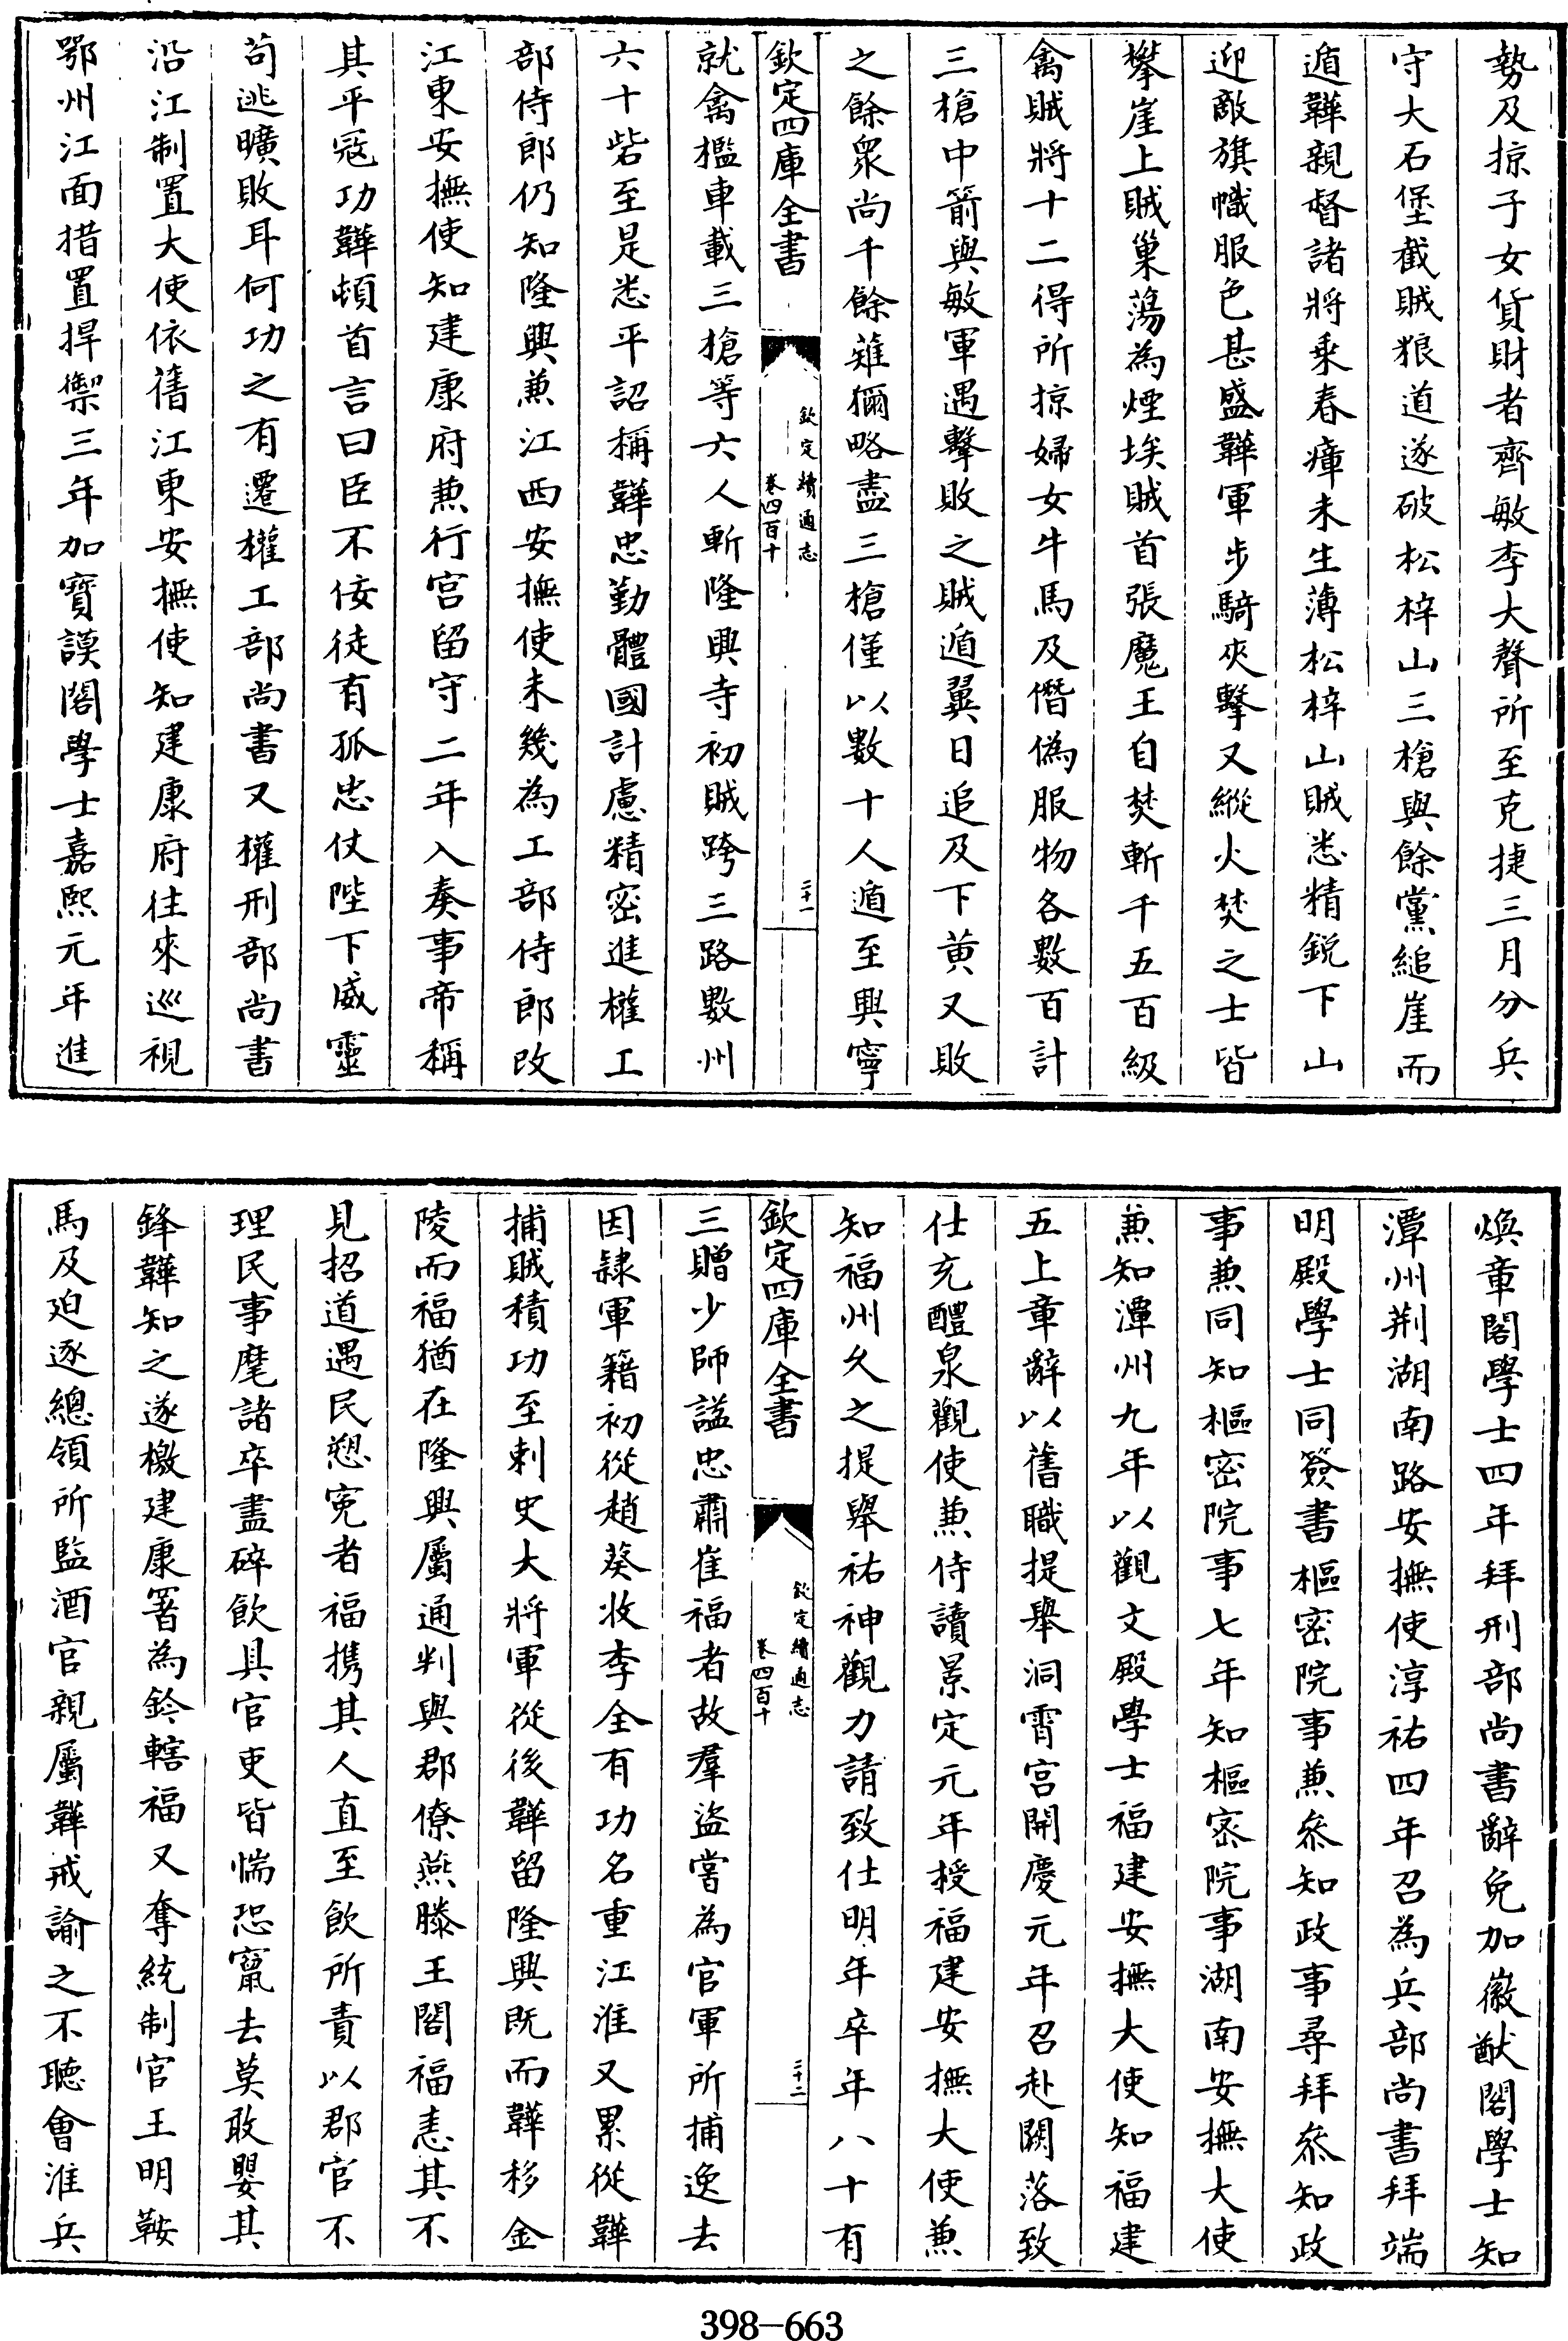 勢及掠子女貨財者齊敏李大聲所至克捷三月分兵
守大石堡截賊狼道遂破松梓山三槍與餘黨縋崖而
遁韡親督諸將乘春瘴未生薄松梓山賊悉精鋭下山
迎敵旗幟服色甚盛韡軍步騎夾擊又縱火焚之士皆
攀崖上賊巢蕩為煙埃賊首張魔王自焚斬千五百級
禽賊將十二得所掠婦女牛馬及僭偽服物各數百計
三槍中箭與敏軍遇擊敗之賊遁翼日追及下黄又敗
之餘衆尚千餘薙獮略盡三槍僅以數十人遁至興寧
欽定四庫全書
欽定續通志
卷四百十
三十一
就禽檻車載三槍等六人斬隆興寺初賊跨三路數州
六十砦至是悉平詔稱韡忠勤體國計慮精密進權工
部侍郎仍知隆興兼江西安撫使未幾為工部侍郎改
江東安撫使知建康府兼行宫留守二年入奏事帝稱
其平寇功韡頓首言曰臣不佞徒有孤忠仗陛下威靈
苟逃曠敗耳何功之有遷權工部尚書又權刑部尚書
沿江制置大使依舊江東安撫使知建康府往來巡視
鄂州江面措置捍禦三年加寳謨閣學士嘉熙元年進
煥章閣學士四年拜刑部尚書辭免加徽猷閣學士知
潭州荆湖南路安撫使淳祐四年召為兵部尚書拜端
明殿學士同簽書樞密院事兼參知政事尋拜參知政
事兼同知樞密院事七年知樞密院事湖南安撫大使
兼知潭州九年以觀文殿學士福建安撫大使知福建
五上章辭以舊職提舉洞霄宫開慶元年召赴闕落致
仕充醴泉觀使兼侍讀景定元年授福建安撫大使兼
知福州久之提舉祐神觀力請致仕明年卒年八十有
欽定四庫全書
欽定續通志
卷四百十
三十二
三贈少師諡忠肅崔福者故羣盜嘗為官軍所捕逸去
因隸軍籍初從趙葵收李全有功名重江淮又累從韡
捕賊積功至刺史大將軍從後韡留隆興既而韡移金
陵而福猶在隆興屬通判與郡僚燕滕王閣福恚其不
見招道遇民愬寃者福携其人直至飲所責以郡官不
理民事麾諸卒盡碎飲具官吏皆惴恐竄去莫敢嬰其
鋒韡知之遂檄建康署為鈐轄福又奪統制官王明鞍
馬及廹逐總領所監酒官親屬韡戒諭之不聽會淮兵
398-663